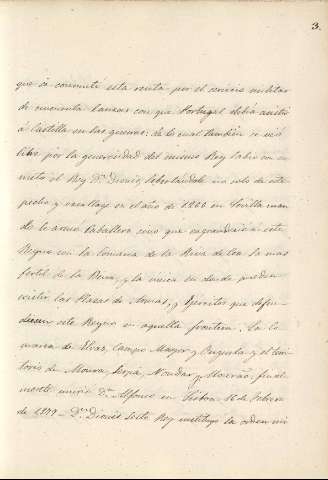 3.
que se conmutó esta renta por el servicio militar
de cincuenta lanzas con que Portugal debia asistir
á Castilla en las guerras: de lo cual tambien se vió
libre por la generosidad del mismo Rey Sabio con su
nieto el Rey Dn. Dionis, libertandole no solo de este
pecho y vasallage en el año de 1266 en Sevilla
de armar Caballero sino que engrandeció á este
Reyno con la Comarca de la Riva de Coa la mas
fertil de la Beira, y la unica en donde pueden
existir las Plazas de Armas, y Egercitos que defen-
diesen este Reyno en aquella frontera. La Co-
marca de Elvas, Campo Mayor y Ouguela y el terri-
torio de Moura, Serpa, Noudar y Mourão, final-
mente murió Dn. Alfonso en Lisboa 16 de Febrero
de 1279 Dn. Dionis Sesto Rey instituyo la orden mi